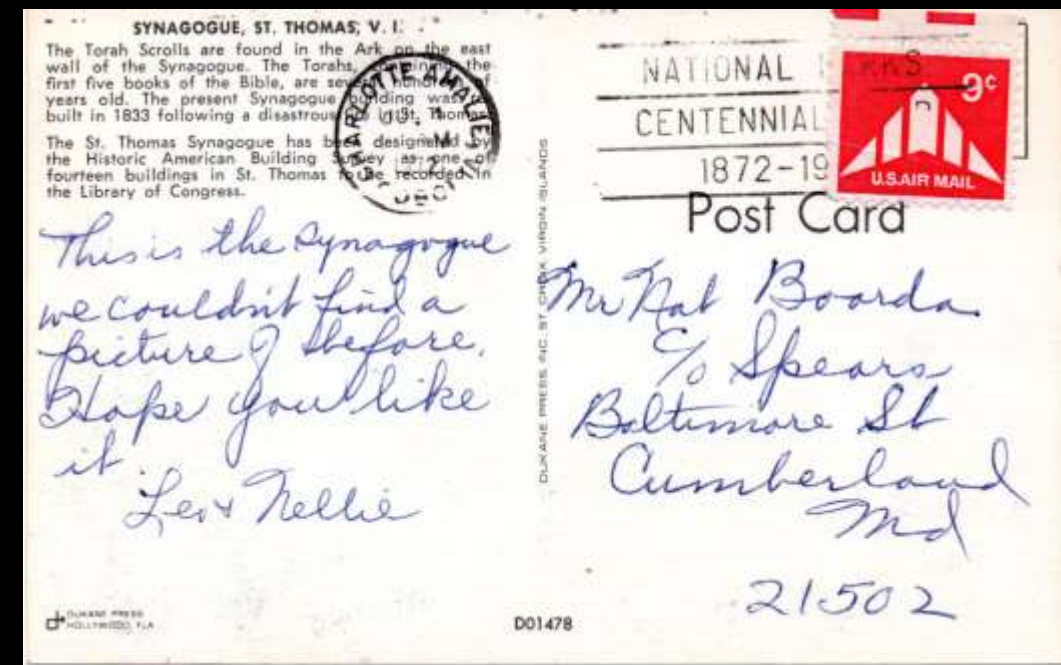 SYNAGOGUE, ST. THOMAS, V. I.
The Torah Scrolls are found in the Ark on the east
wall of the Synagogue. The Torahs, containing the
first five books of the Bible, are several hundred of
years old. The present Synagogue building was
built in 1833 following a disastrous fire in St. Thomas.
The St. Thomas Synagogue has been designated by
the Historic American Building Survey as one of
fourteen buildings in St. Thomas to be recorded in
the Library of Congress.
CHARLOTTE AMALIE, V.I.
DEC
This is the synagogue
we couldn't find a
picture of before.
Hope you like
it.
Leo & Nellie
DUKANE PRESS
HOLLYWOOD, FLA
D01478
DUKANE PRESS, INC. ST. CROIX, VIRGIN ISLANDS
NATIONAL PARKS
CENTENNIAL
1872-19
9c
U.S. AIR MAIL
Post Card
Mr Nat Boorda
c/o Spears
Baltimore St
Cumberland
Md
21502